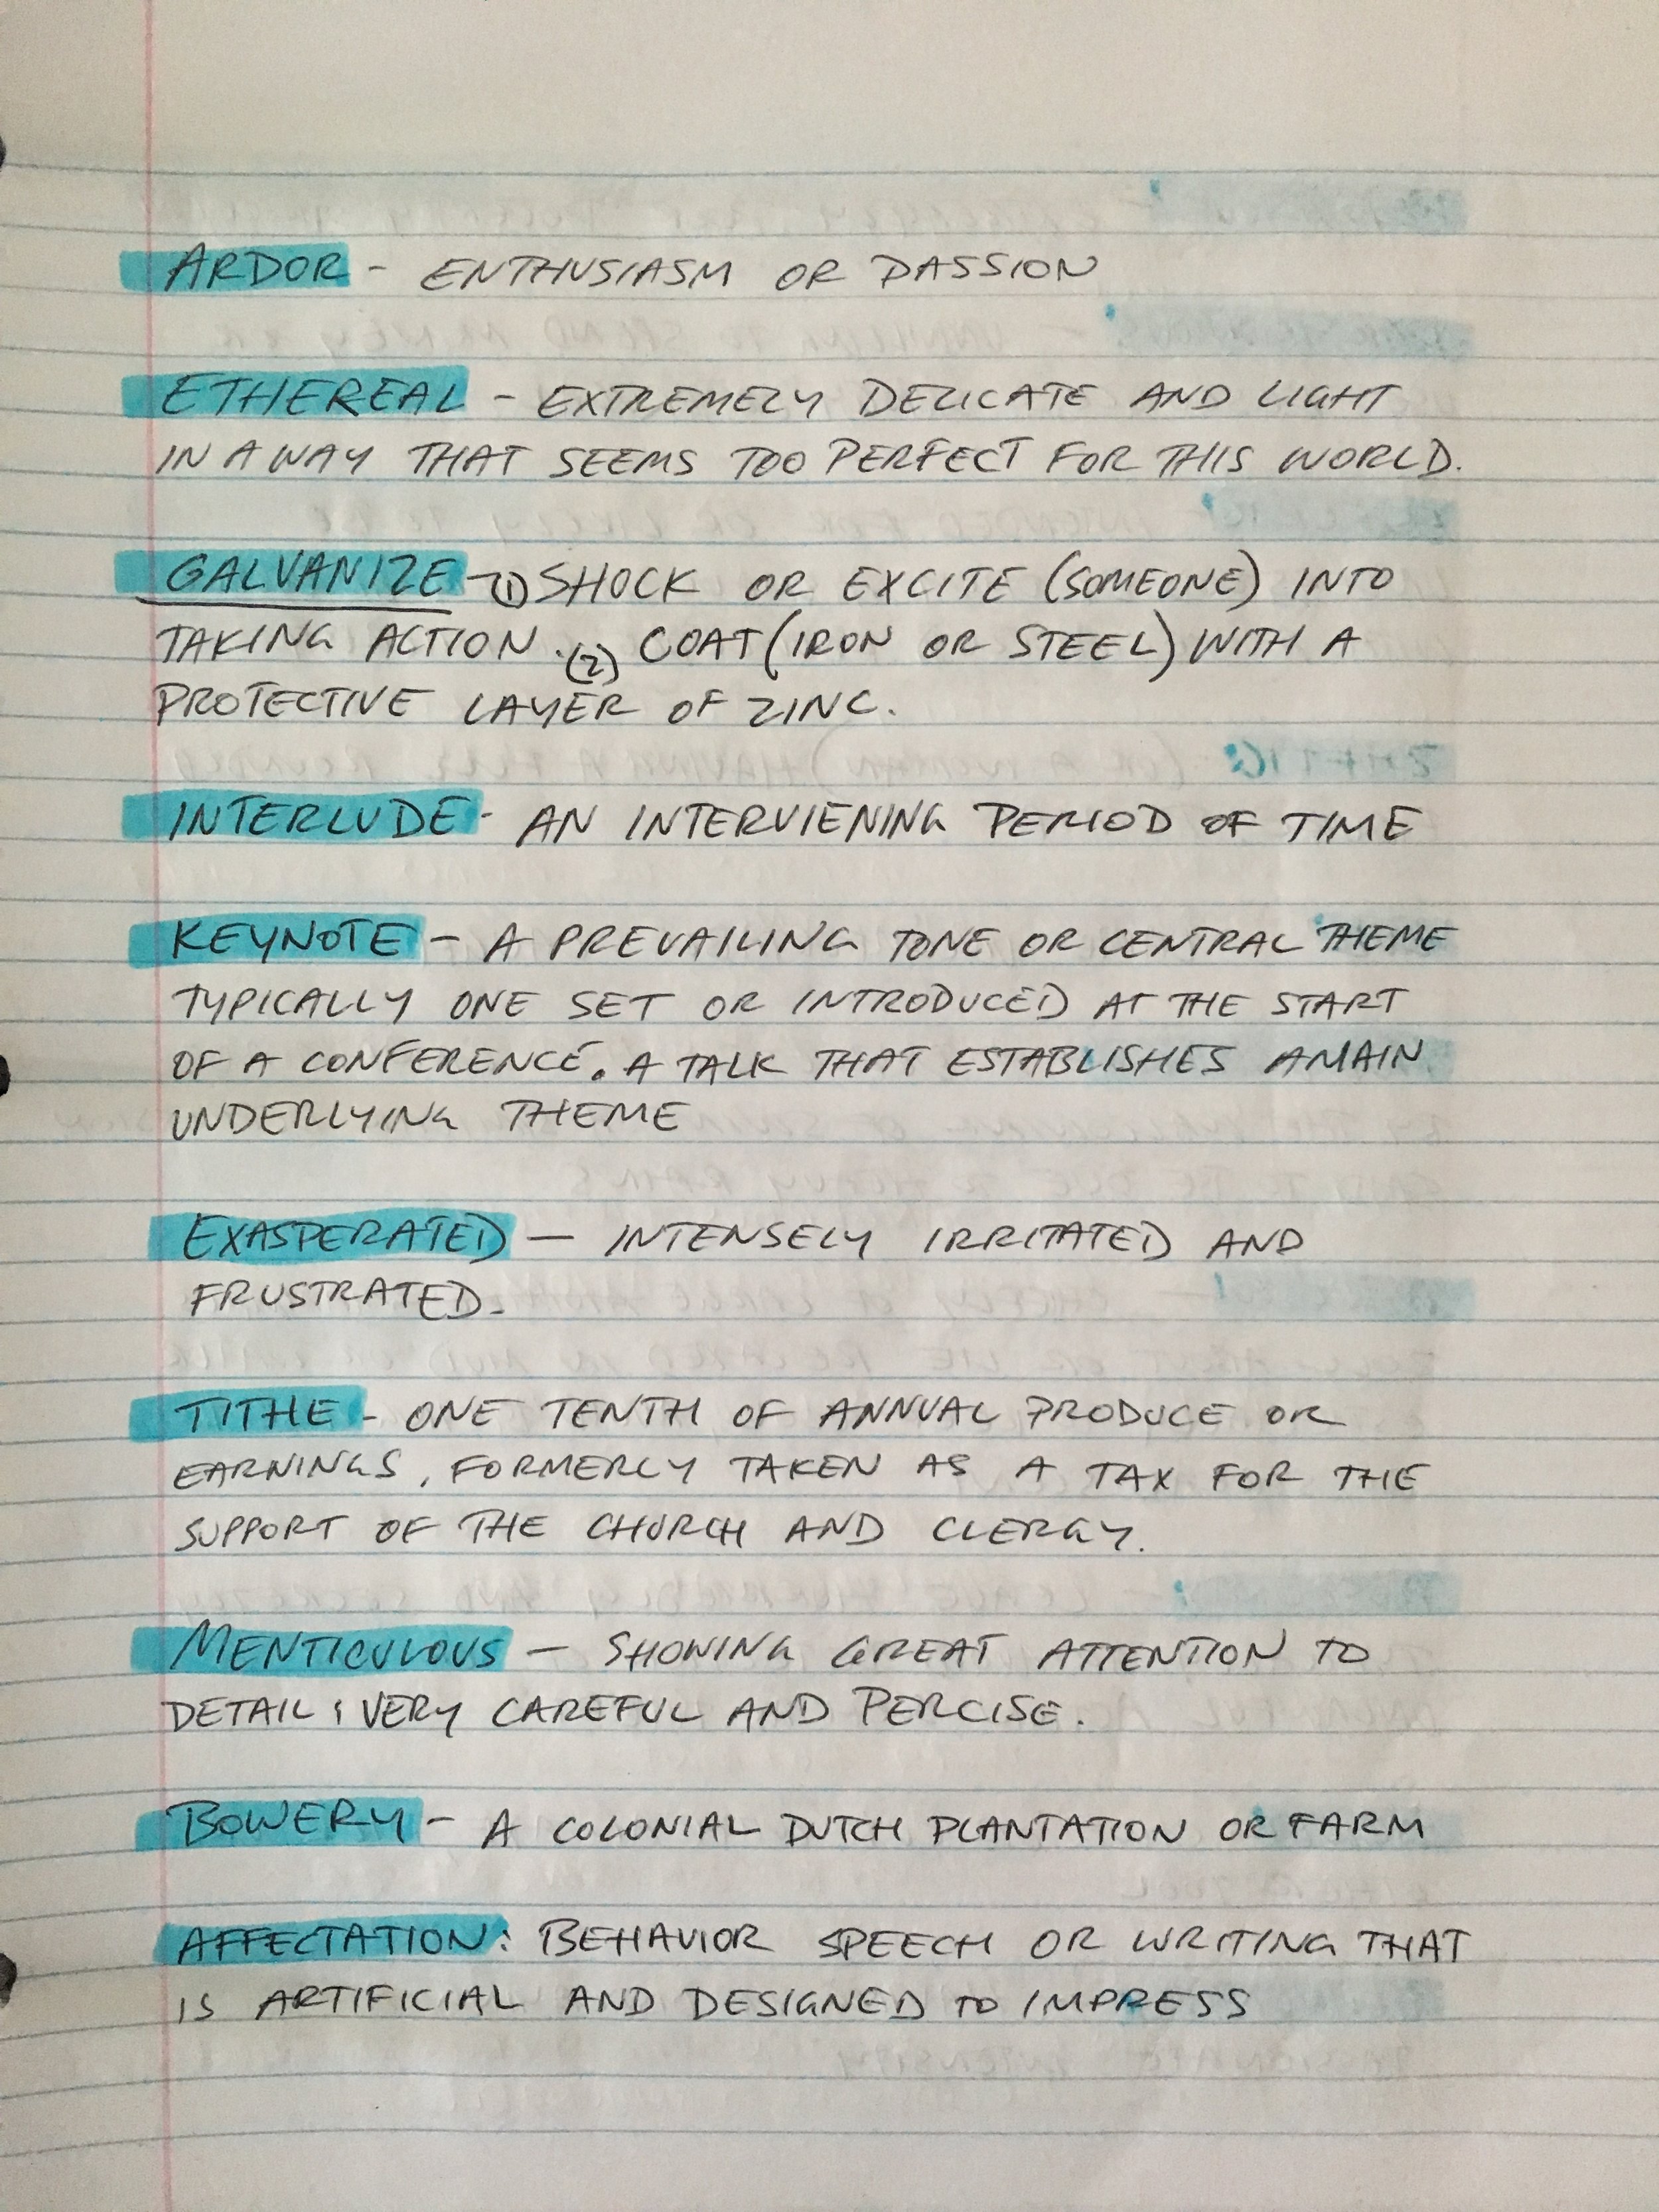 ARDOR - ENTHUSIASM OR PASSION
ETHEREAL - EXTREMELY DELICATE AND LIGHT
IN A WAY THAT SEEMS TOO PERFECT FOR THIS WORLD.
GALVANIZE - (1) SHOCK OR EXCITE (SOMEONE) INTO
TAKING ACTION. (2) COAT (IRON OR STEEL) WITH A
PROTECTIVE LAYER OF ZINC.
INTERLUDE - AN INTERVIENING PERIOD OF TIME
KEYNOTE - A PREVAILING TONE OR CENTRAL THEME
TYPICALLY ONE SET OR INTRODUCED AT THE START
OF A CONFERENCE. A TALK THAT ESTABLISHES A MAIN
UNDERLYING THEME
EXASPERATED - INTENSELY IRRITATED AND
FRUSTRATED.
TITHE - ONE TENTH OF ANNUAL PRODUCE OR
EARNINGS, FORMERLY TAKEN AS A TAX FOR THE
SUPPORT OF THE CHURCH AND CLERGY.
MENTICULOUS - SHOWING GREAT ATTENTION TO
DETAIL; VERY CAREFUL AND PERCISE.
BOWERY - A COLONIAL DUTCH PLANTATION OR FARM
AFFECTATION: BEHAVIOR SPEECH OR WRITING THAT
IS ARTIFICIAL AND DESIGNED TO IMPRESS